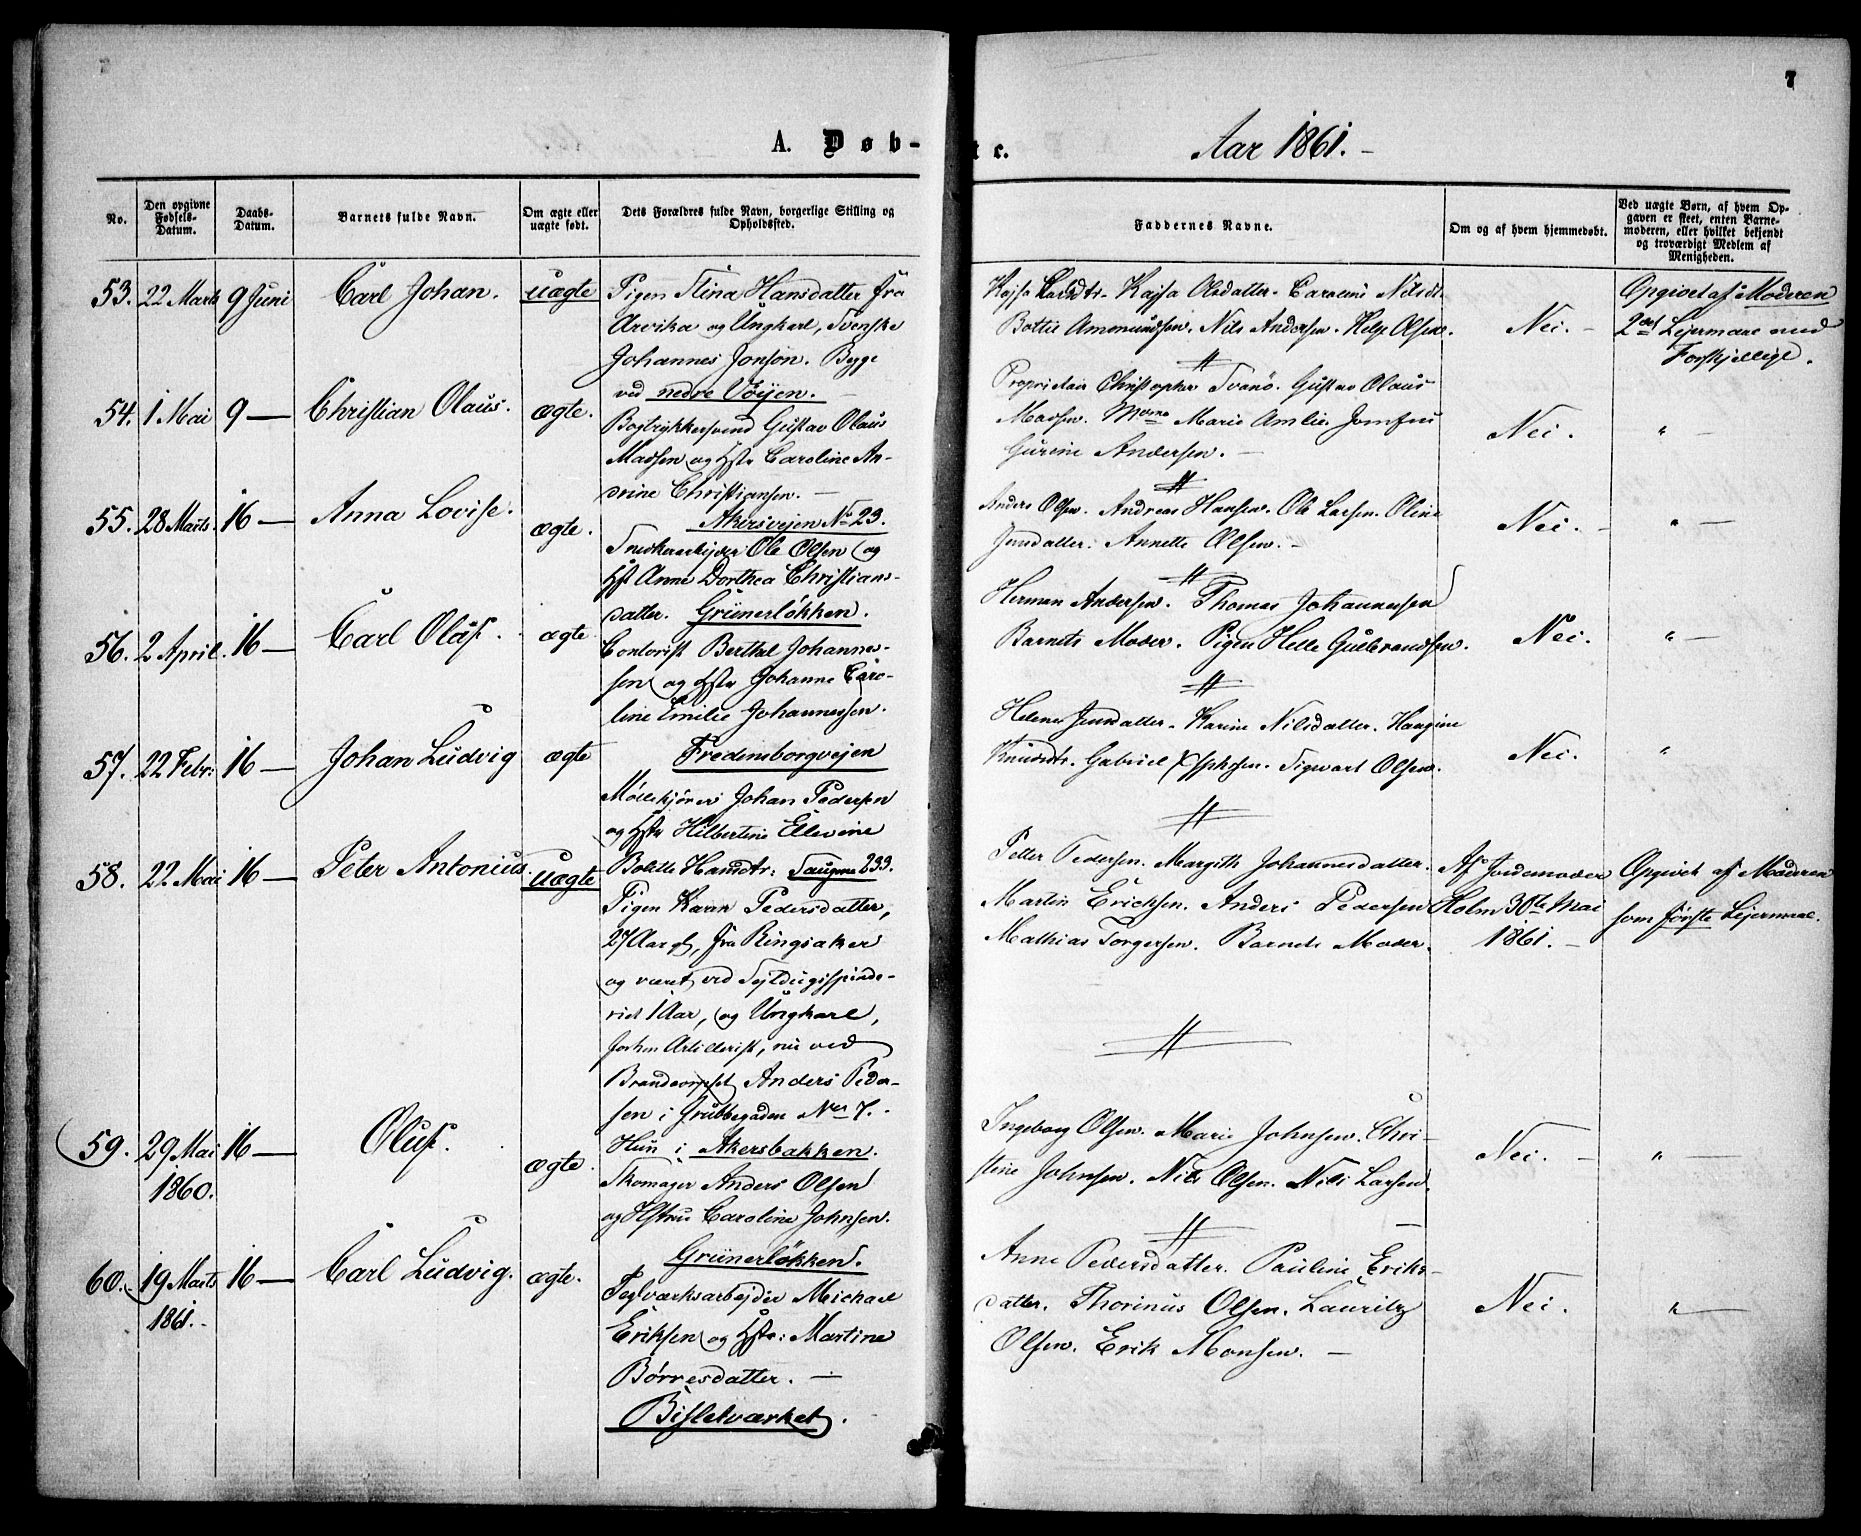 7
A. Døb-
te.
Aar 1861. -
No.
Den opgivne
Fødsels-
Datum.
Daabs-
Datum.
Barnets fulde Navn.
Om ægte eller
uægte født.
Dets Forældres fulde Navn, borgerlige Stilling og
Opholdssted.
Faddernes Navne.
Om og af hvem hjemmedøbt.
Ved uægte Børn, af hvem Op-
gaven er skeet, enten Barne-
moderen, eller hvilket bekjendt
og troværdigt Medlem af
Menigheden.
53. 22 Marts 9 Juni Carl Johan. uægte
Pigen Stina Hansdatter fra
Arvika og Ungkarl, Svenske
Johannes Jonson. Bygge
ved nedre Vøyen. -
Kajsa Kajsa Olsdatter. Caroline Nilsdt.
Bottie Ammundsen. Nils Andersen. Helge Olsen.
Nei. -
Opgivet af Moderen
2det Lejermaal med
Forskjellige.
54. 1 Mai 9 - Christian Olaus. ægte.
Bogtrykkersvend Gustav Olaus
Madsen og Hstr Caroline An-
drine Christiansen. -
Akersveien No 23.
Proprietair Christopher Svanö. Gustav Olaus
Madsen. Mdme Marie Amlie. Jomfru
Gurine Andersen. -
Nei. " -
55. 28 Marts. 16 - Anna Lovise. ægte.
Snedkerarbejder Ole Olsen og
Hst Anne Dorthea Christians-
datter. Grünerløkken.
Anders Olsen. Andreas Hansen. Ole Larsen. Oline
Jensdatter. Annette Olsen. -
Nei. - " -
56. 2 April. 16 - Carl Oluf. ægte
Contorist Berthel Johannes-
sen og Hstr Johanne Caro-
line Emilie Johannessen.
Fredensborgvejen
Herman Andersen. Thomas Johannessen
Barnets Moder. Pigen Helle Gulbrandsen.
Nei. " -
57. 22 Febr: 16 - Johan Ludvig ægte
Møllekjører Johan Pedersen
og Hstr Hilbertine Ellevine
Bolette Hansdtr: Saugene 233.
Helene Jensdatter. Karine Nilsdatter. Haagine
Knudsdt. Gabriel Sigwart Olsen.
Nei. "
58. 22 Mai 16 - Peter Antonius. uægte
Pigen Karen Pedersdatter,
27 Aar gl, fra Ringsaker
og været ved Sejldugsspinde-
riet 1 Aar, og Ungkarl,
forhen Artillerist, nu ved
Brandcorpset Anders Peder-
sen i Grubbegaden No 7.
Hun i Akersbakken.
Petter Pedersen. Margith Johannesdatter.
Martin Erichsen. Anders Pedersen
Mathias Torgersen. Barnets Moder.
Af Jordemoder
Holm 30te Mai
1861. -
Opgivet af Moderen
som første Lejermaal.
59. 29 Mai 16 - Oluf. ægte.
1860.
Skomager Anders Olsen
og Hstru Caroline Johnsen.
Grünerløkken.
Ingeborg Olsen. Marie Johnsen. Chri-
stine Johnsen. Nils Olsen. Nils Larsen.
Nei. - " -
60. 19 Marts 16 - Carl Ludvig. ægte.
1861. -
Teglværksarbejder Michael
Eriksen og Hstr: Martine
Børresdatter. -
Bisletværket.
Anne Pedersdatter. Pauline Eriks-
datter. Thorinus Olsen. Lauritz
Olsen. Erik Monsen. -
Nei. " -